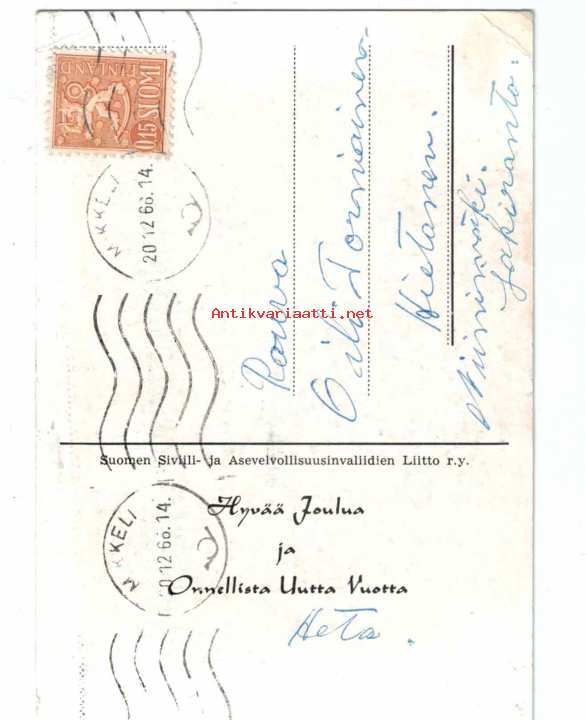 0,15 SUOMI
FINLAND
MIKKELI
20 12 66.14.
Rouva
Oili Tormäinen
Hietanen.
Jakiranta.
Antikvariaatti.net
Suomen Siviili- ja Asevelvollisuusinvaliidien Liitto r.y.
MIKKELI
20 12 66.14.
Hyvää Joulua
ja
Onnellista Uutta Vuotta
Heta.